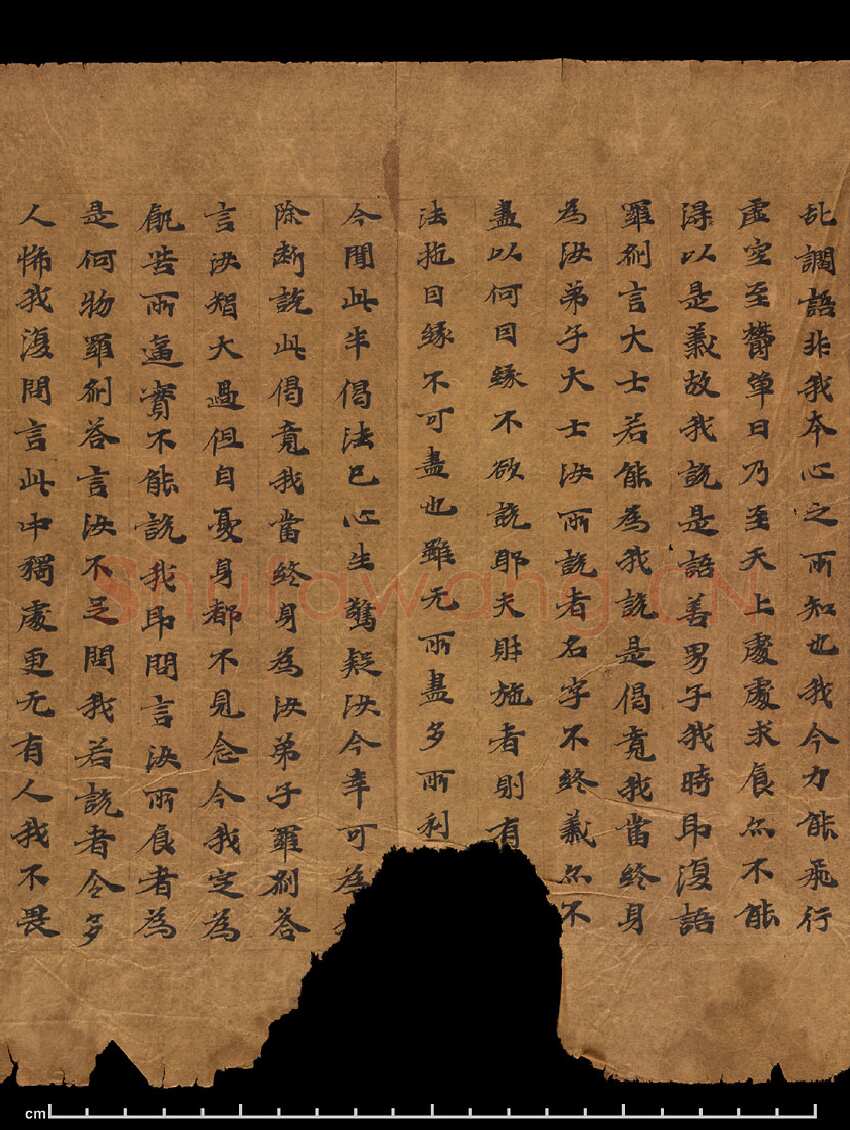 乱調語非我本心之所知也我今力能飛行
虛空至欝單曰乃至天上處處求食亦不能
淂以是義故我說是語善男子我時即復語
羅剎言大士若能為我說是偈竟我當終身
為汝弟子大士汝所說者名字不終義亦不
盡以何因緣不欲說耶夫財施者則有
法施因緣不可盡也雖无所盡多所利
今聞此半偈法已心生驚疑汝今幸可為
除斷說此偈竟我當終身為汝弟子羅剎答
言汝智大過但自憂身都不見念今我定為
飢苦所逼實不能說我即問言汝所食者為
是何物羅剎答言汝不足問我若說者令多
人怖我復問言此中獨處更无有人我不畏
Shufawang.CN
cm